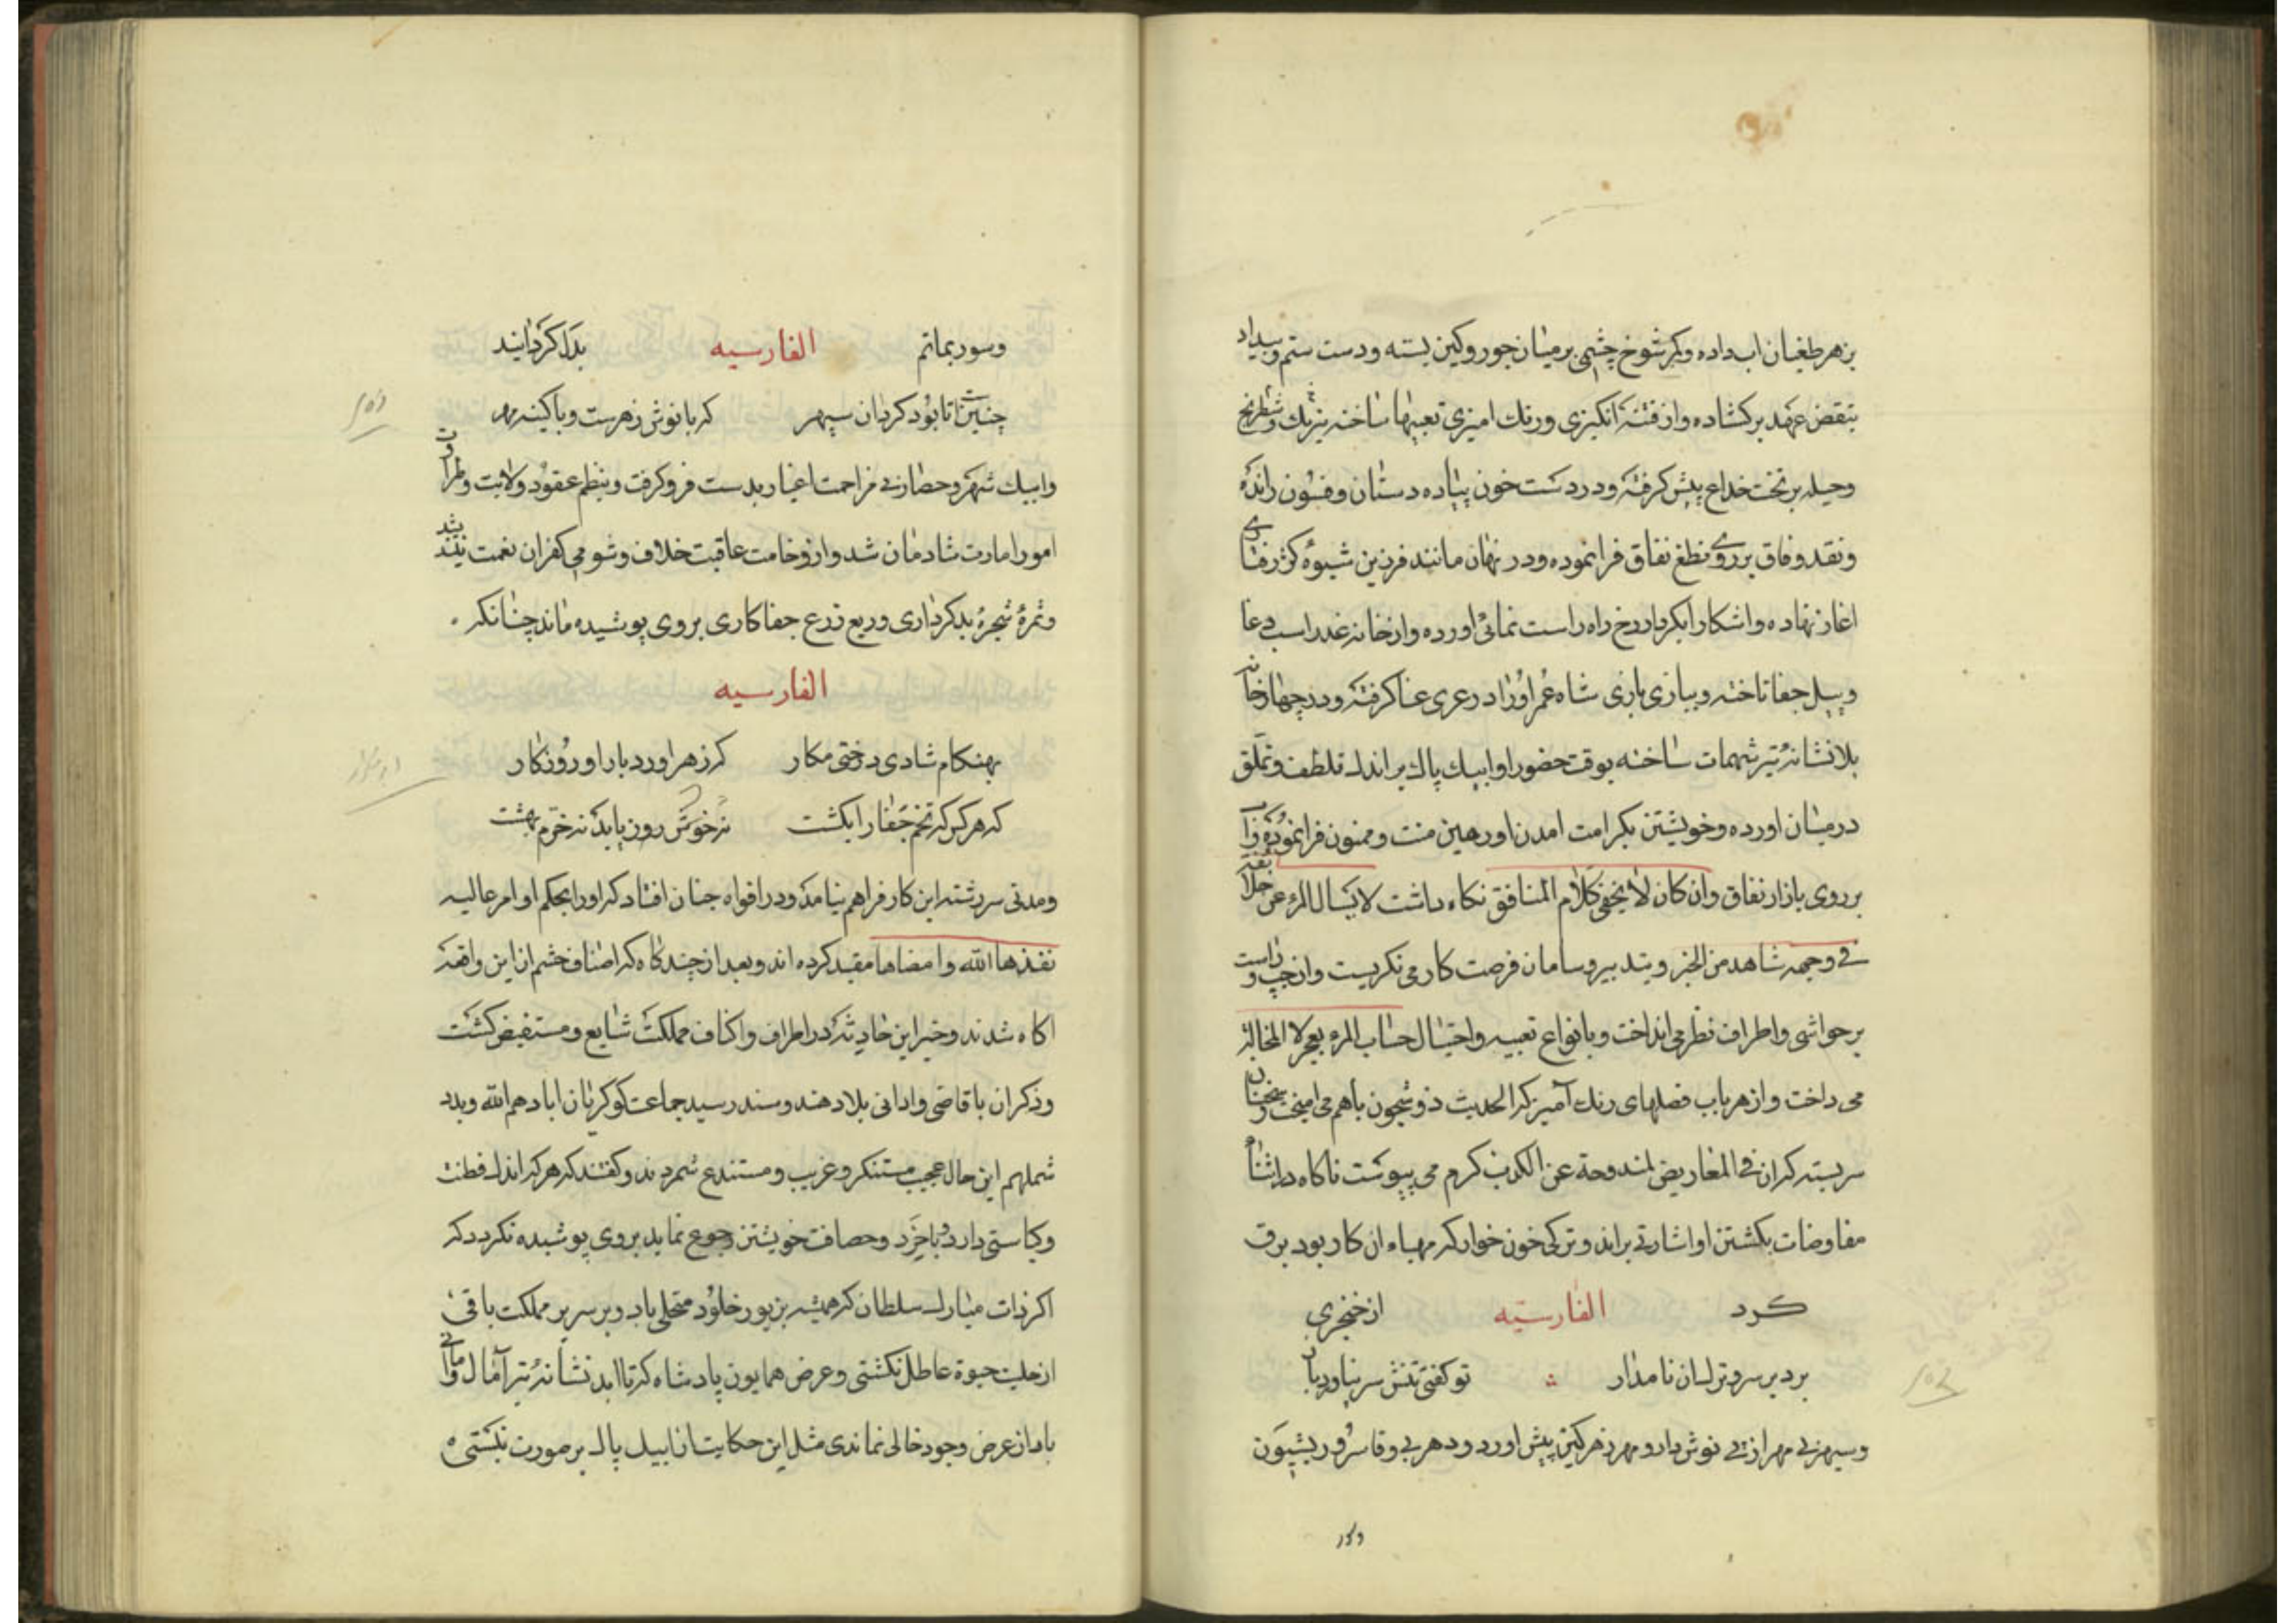 بزهر طغیان اب داده وکر شوخ چشمی بر میان جور وکین بسته ودست ستم وبیداد
بنقض عهد برکشاده واز فتنه انکیزی ورنک امیزی تعبیها ساخته نیرنک وشطرنج
وحیله بر تخت خداع پیش کرفته ودر دست خون پیاده دستان وفسون رانده
ونقد وفاق بر روی نطع نفاق فرا نموده ودر نهان مانند فرزین شیوه کژ رفتاری
اغاز نهاده واشکارا بکردار رخ راه راست نمائی اورده واز خانه غدر اسب دغا
وپیل جفا تاخته وببازی بازی شاه عمر اورا در عری عنا کرفته ودر چهار خانه
بلا نشانه تیر شهمات ساخته بوقت حضور او ایبک پاک براندک تلطف وتملق
در میان اورده وخویشتن بکرامت امدن او رهین منت وممنون فرا نموده وزان
بر روی بازار نفاق وان کان لا یخفی کلام المنافق نکاه داشت لا یسال المرء عن خلائقه
فی وجهه شاهد من الخبر وبتدبیر وسامان فرصت کار می نکریست واز چپ وراست
بر حواشی واطراف نظر می انداخت وبانواع تعبیه واحتیال حساب المرء یعجز لا المحاله
می داخت واز هر باب فصلهای رنک آمیز که الحدیث ذو شجون باهم می امیخت وسخنان
سربسته که ان فی المعاریض لمندوحة عن الکذب کرم می پیوست ناکاه در اثناء
مفاوضات بکشتن او اشارتی براند وترکی خون خوار که مهیاء ان کار بود برق
کرد الفارسیه از خنجری
برد بر سر وترک ان نامدار تو کفتی تنش سر نیاورد بار
وسپهر بی مهر از پی نوش دارو مهر زهر کین پیش اورد ودهر بی وفا سرور بشیون
وکرد
وسور بماتم الفارسیه بدل کردانید
چنینست تا بود کردان سپهر که با نوش زهرست وبا کینه مهر
وایبک شهر وحصار بی مزاحمت اغیار بدست فرو کرفت وبنظم عقود ولایت وطراوت
امور امارت شادمان شد واز وخامت عاقبت خلاف وشومی کفران نعمت نیندیشید
وثمره شجره بدکرداری وریع زرع جفا کاری بروی پوشیده ماند چنانکه
الفارسیه
بهنکام شادی درختی مکار که زهر اورد بار او روزکار
که هر کس که تخم جفا را بکشت نه خوش روز یابد نه خرم بهشت
ومدتی سر رشته این کار فراهم نیامد ودر افواه چنان افتاد که اورا بحکم اوامر عالیه
نفذها الله وامضاها مقید کرده اند وبعد از چند کاه که اصناف حشم از این واقعه
اکاه شدند وخبر این حادثه در اطراف واکناف مملکت شایع ومستفیض کشت
وذکر ان باقاصی وادانی بلاد هند وسند رسید جماعت کوکریان ابادهم الله وبدد
شملهم این حال عجیب مستنکر وغریب ومستبدع شمردند وکفتند که هر که اندک فطنت
وکیاستی دارد وبا خرد وحصافت خویشتن رجوع نماید بروی پوشیده نکردد که
اکر ذات مبارک سلطان که همیشه بزیور خلود متحلی باد وبر سریر مملکت باقی
از حلیت حیوة عاطل نکشتی وعرض همایون پادشاه که تا ابد نشانه تیر آمال وامانی
باد از عرض وجود خالی نماندی مثل این حکایت از ایبک پاک بر صورت نبستی